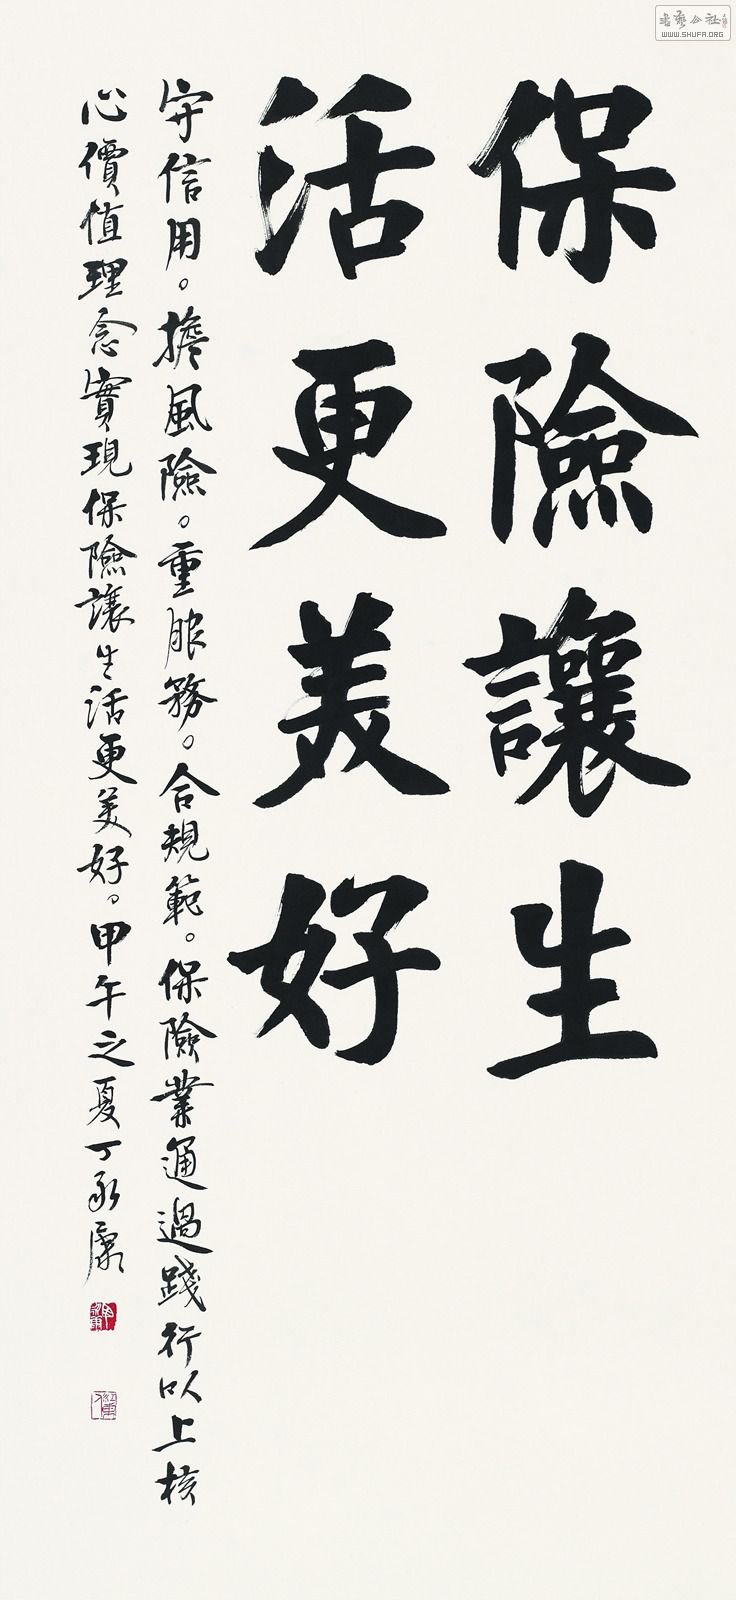 保險讓生
活更美好
守信用。擔風險。重服務。合規範。保險業通過踐行以上核
心價值理念實現保險讓生活更美好。甲午之夏丁永康
書藝公社
WWW.SHUFA.ORG